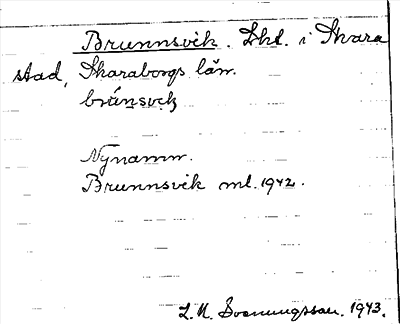 Brunnsvik. Lht. i Skara
stad, Skaraborgs län.
brúnsvik
Nynamn.
Brunnsvik ml. 1942.
L. M. Svenungsson. 1943.